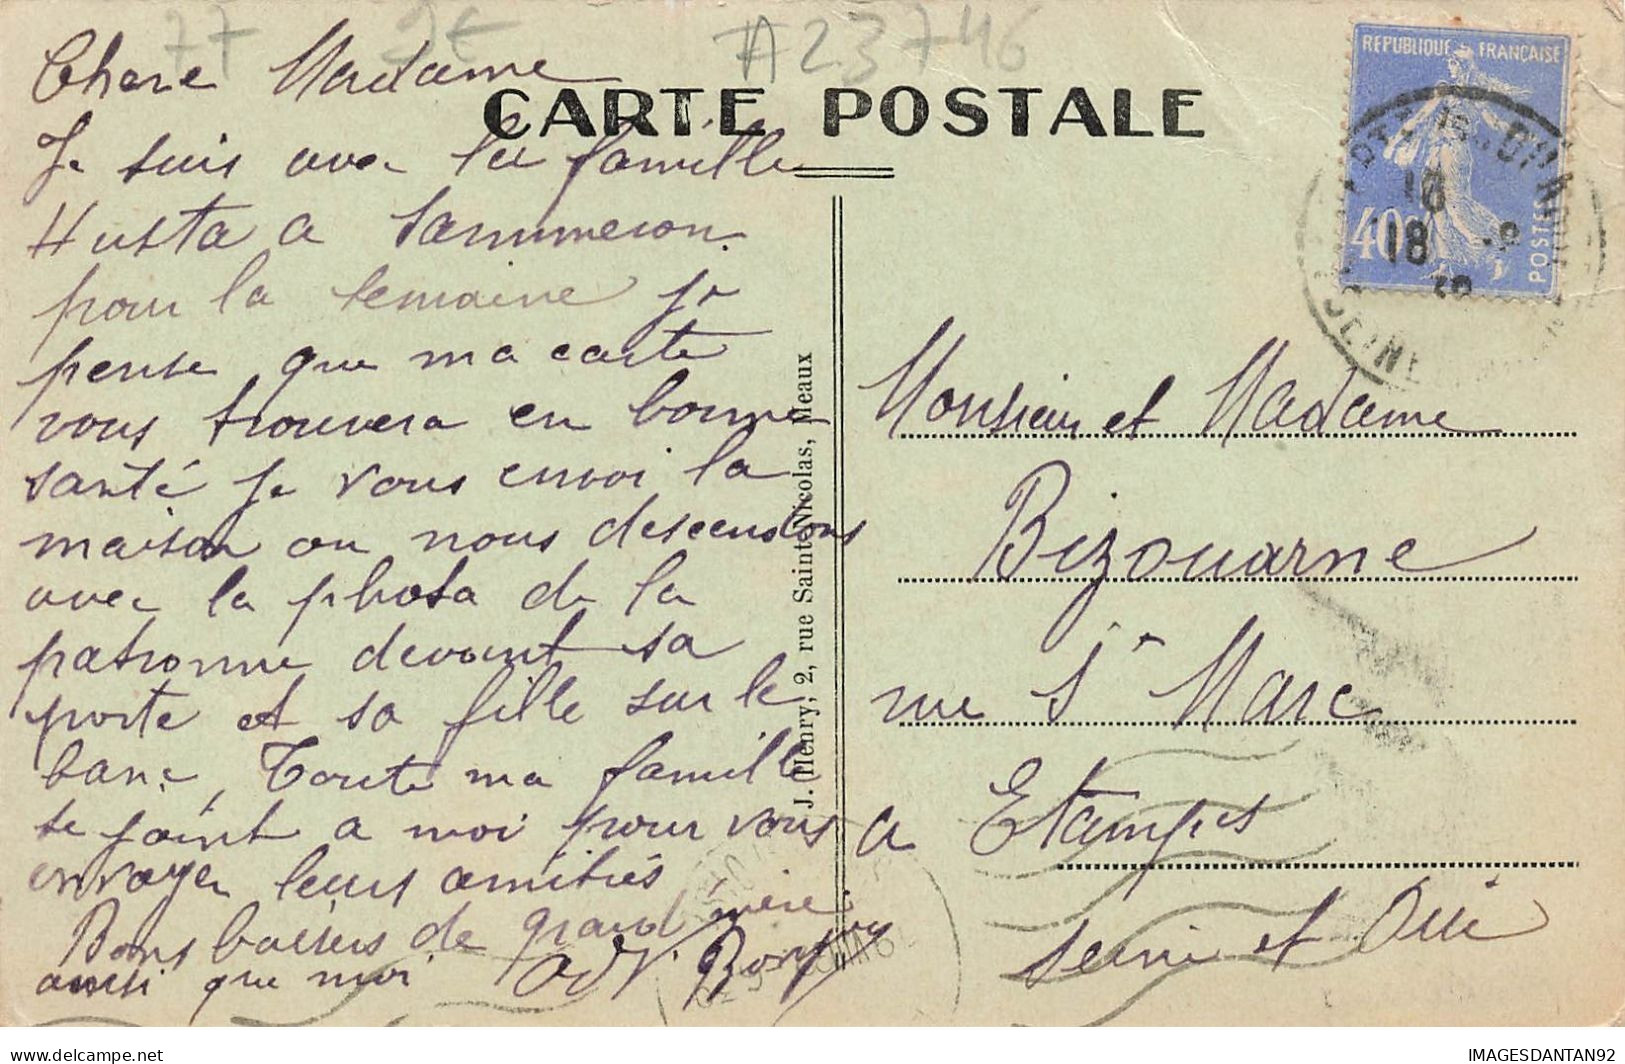 77 2€ A23746
Chere Madame
CARTE POSTALE
Je suis avec la famille
Husta a Sammeron
pour la semaine je
pense que ma carte
vous trouvera en bonne
santé je vous envoi la
maison ou nous descendons
avec la phota de la
patronne devant sa
porte et sa fille sur le
banc, Toute ma famille
se joint a moi pour vous
envoyer leurs amitiés
Bons baisers de grand mère
ainsi que moi
J. Henry, 2, rue Sainte-Nicolas, Meaux
REPUBLIQUE FRANÇAISE
40c
POSTES
18
SEINE
Monsieur et Madame
Bizouarne
rue St Marc
a Etampes
seine et Oise
IMAGESDANTAN92
delcampe.net